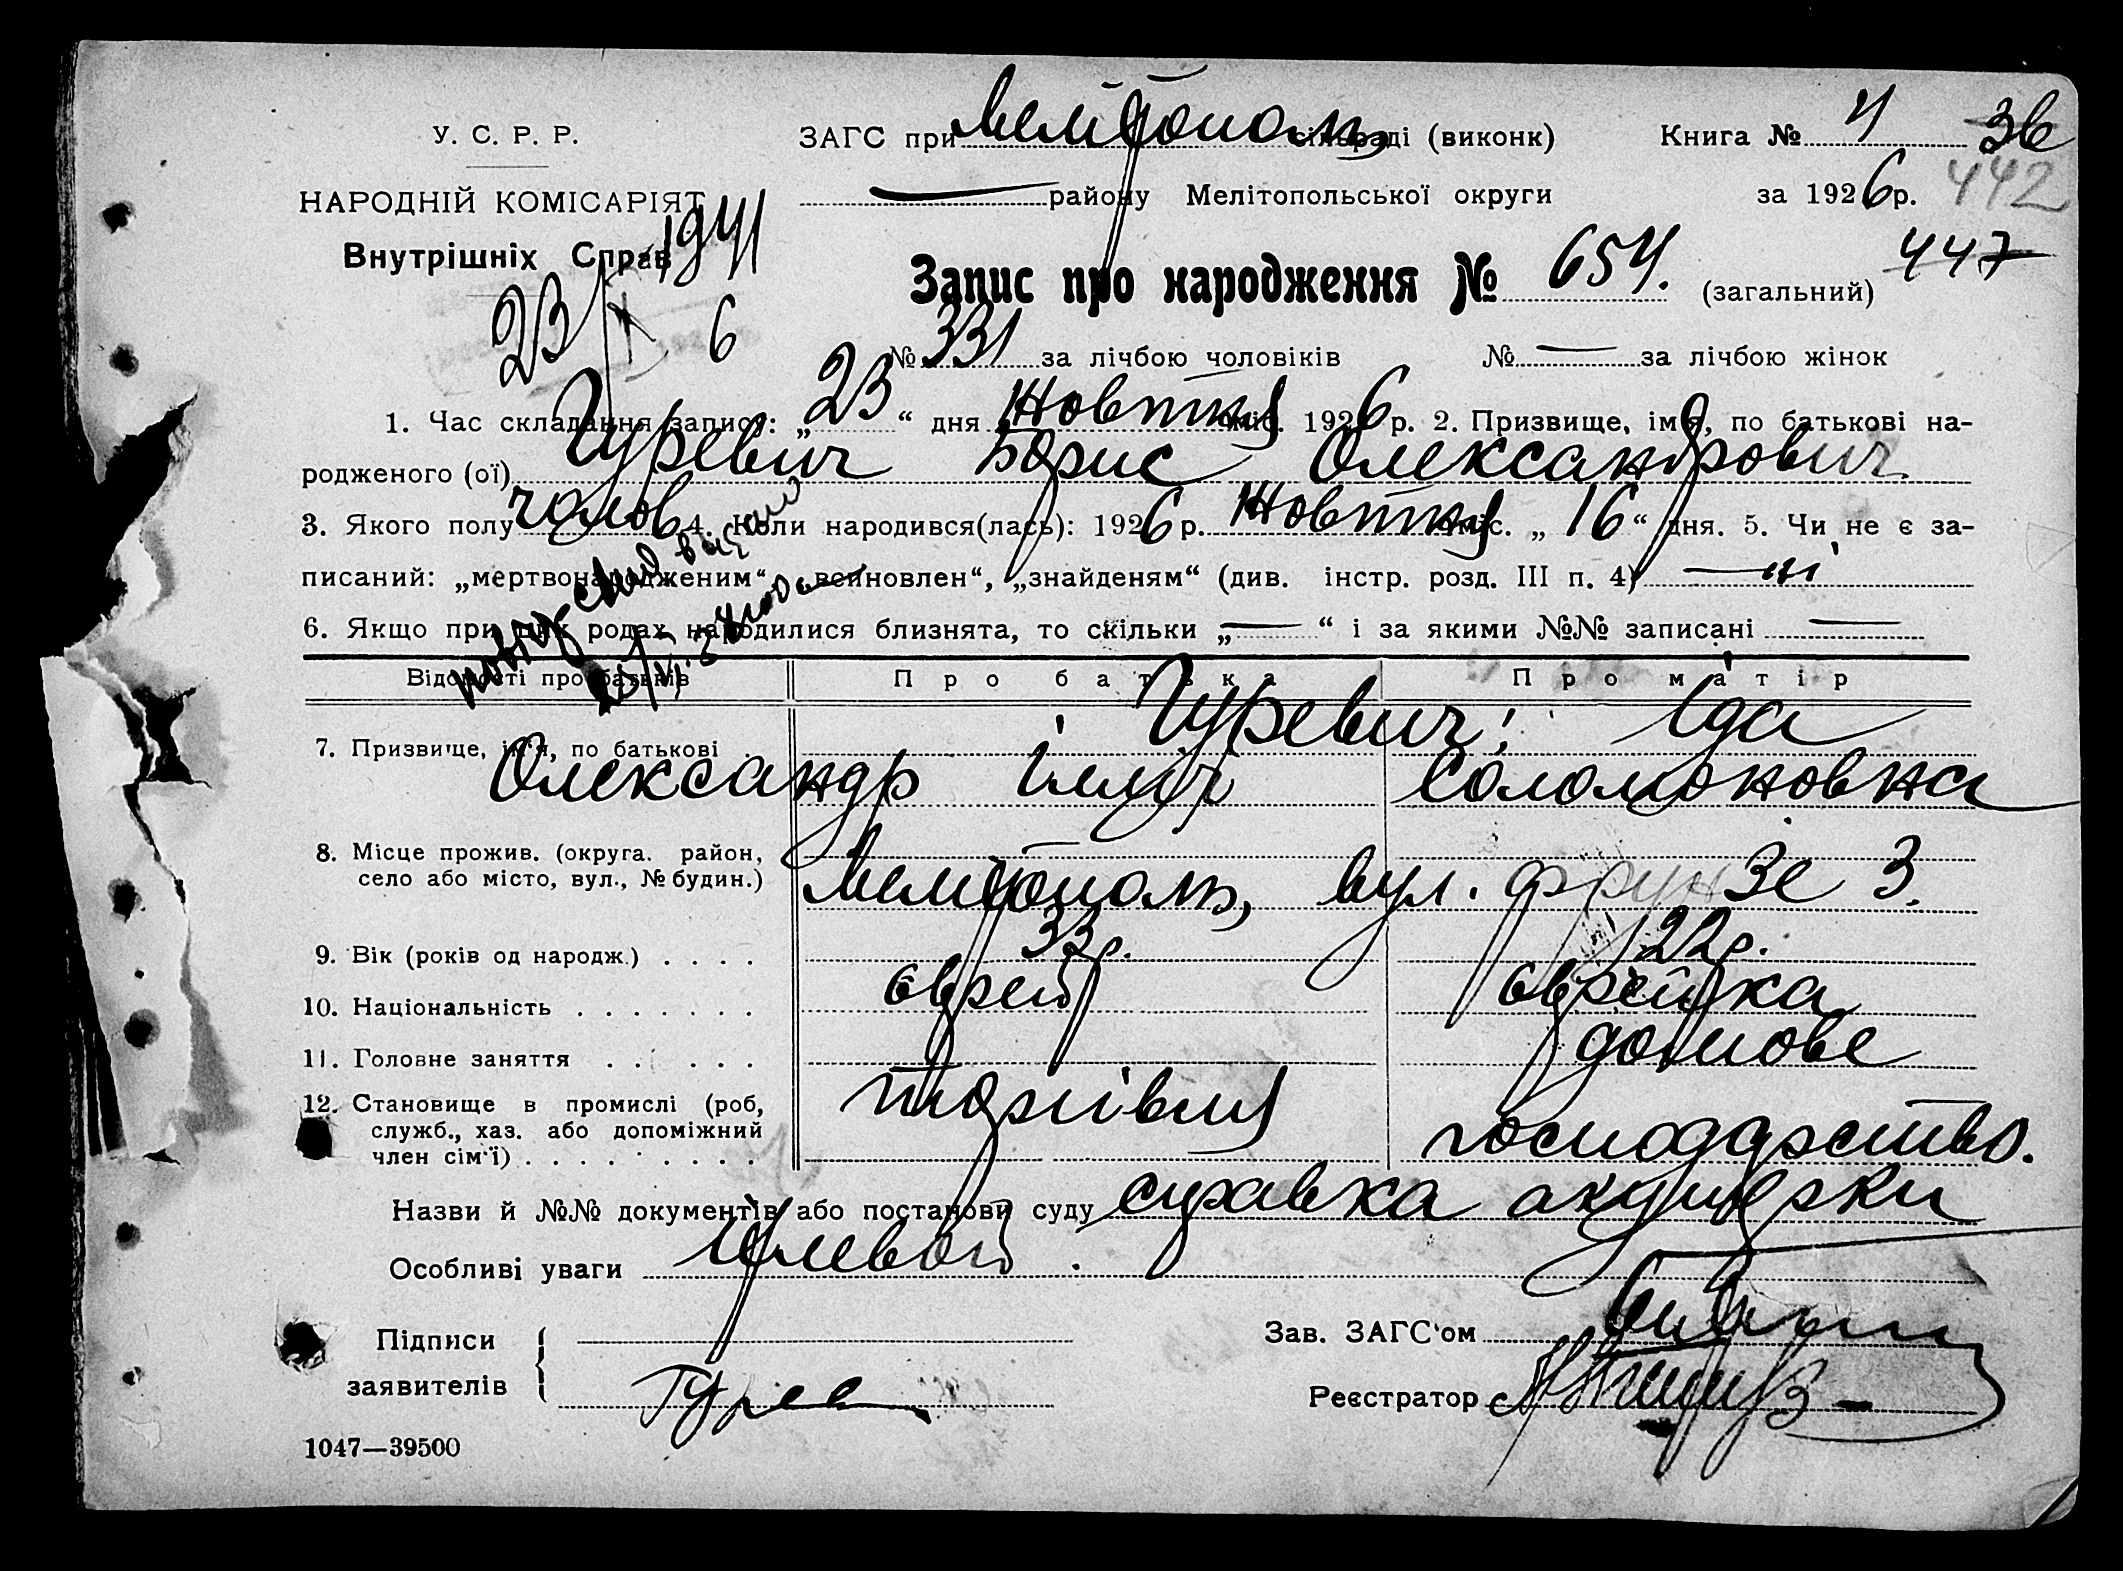 У. С. Р. Р. ЗАГС при Мелітополь сільраді (виконк) Книга № 4 36
НАРОДНІЙ КОМІСАРІЯТ — району Мелітопольської округи за 1926 р. 442
Внутрішніх Справ 1941
Запис про народження № 654. (загальний) 447
23/X 6
№ 331 за лічбою чоловіків № — за лічбою жінок
1. Час складання запису: „23“ дня Жовтня міс. 1926 р. 2. Призвище, ім'я, по батькові на-
родженого (ої) Гуревич Борис Олександрович
3. Якого полу чолов. 4. Коли народився(лась): 1926 р. Жовтня міс. „16“ дня. 5. Чи не є за-
писаний: „мертвонародженим“, „всиновлен“, „знайденям“ (див. інстр. розд. III п. 4) — ні
6. Якщо при цих родах народилися близнята, то скільки „—“ і за якими №№ записані —
Відомості про батьків Про батька Про матір
7. Призвище, ім'я, по батькові . Гуревич: Іда
Олександр Ілліч Соломоновна
8. Місце прожив. (округа. район,
село або місто, вул., № будин.) Мелітополь, вул. Фрунзе 3.
9. Вік (років од народж.) . . . . 33 р. 22 р.
10. Національність . . . . . . . єврей єврейка
11. Головне заняття . . . . . . домове
12. Становище в промислі (роб, торгівля
служб., хаз. або допоміжний господарство.
член сім'ї) . . . . . . . . .
Назви й №№ документів або постанови суду справка акушерки
Особливі уваги
Підписи Зав. ЗАГС'ом
заявителів Гурев Реєстратор
1047—39500